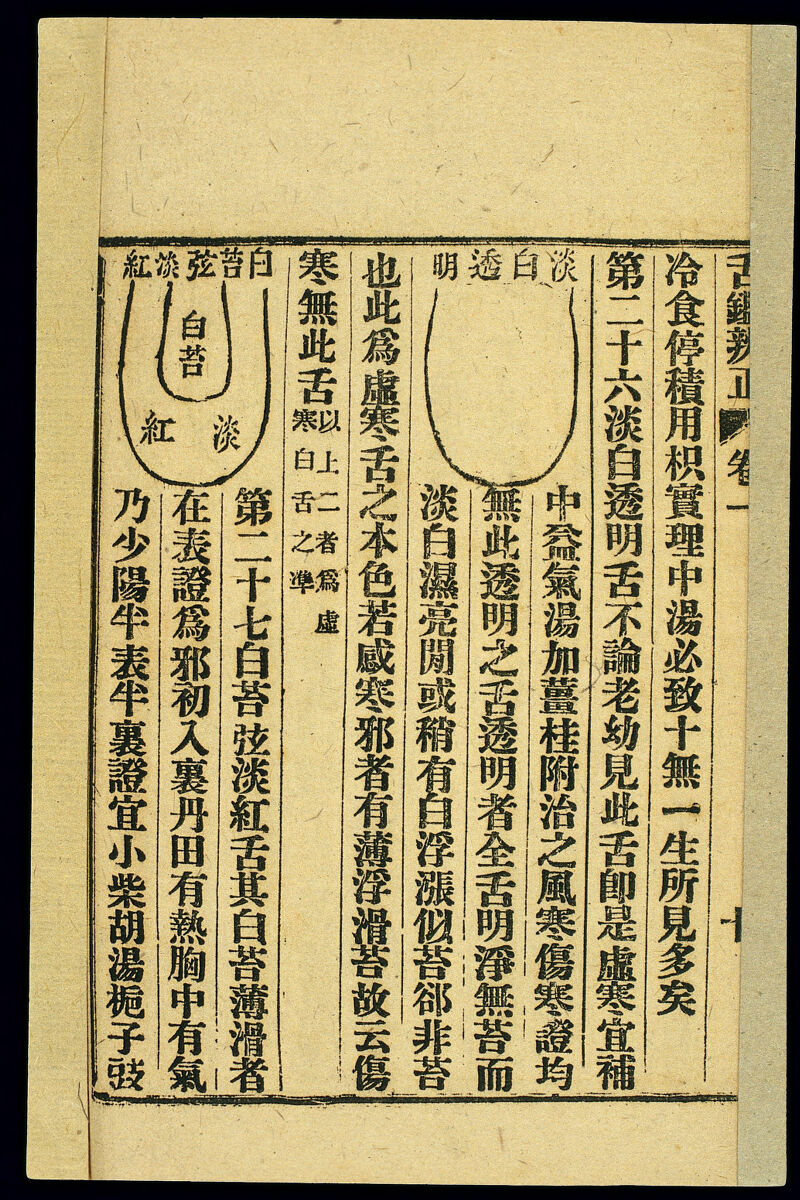 舌鑑辨正 卷一 十
冷食停積用枳實理中湯必致十無一生所見多矣
第二十六淡白透明舌不論老幼見此舌卽是虛寒宜補
淡白透明
中益氣湯加薑桂附治之風寒傷寒證均
無此透明之舌透明者全舌明淨無苔而
淡白濕亮閒或稍有白浮漲似苔郤非苔
也此爲虛寒舌之本色若感寒邪者有薄浮滑苔故云傷
寒無此舌
以上二者爲虛
寒白舌之準
白苔弦淡紅
白苔
淡
紅
第二十七白苔弦淡紅舌其白苔薄滑者
在表證爲邪初入裏丹田有熱胸中有氣
乃少陽半表半裏證宜小柴胡湯梔子豉